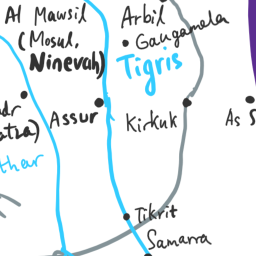 Al Mawsil
(Mosul,
Ninevah)
Arbil
Gaugamela
Tigris
Assur
Kirkuk
As S
Tikrit
Samarra